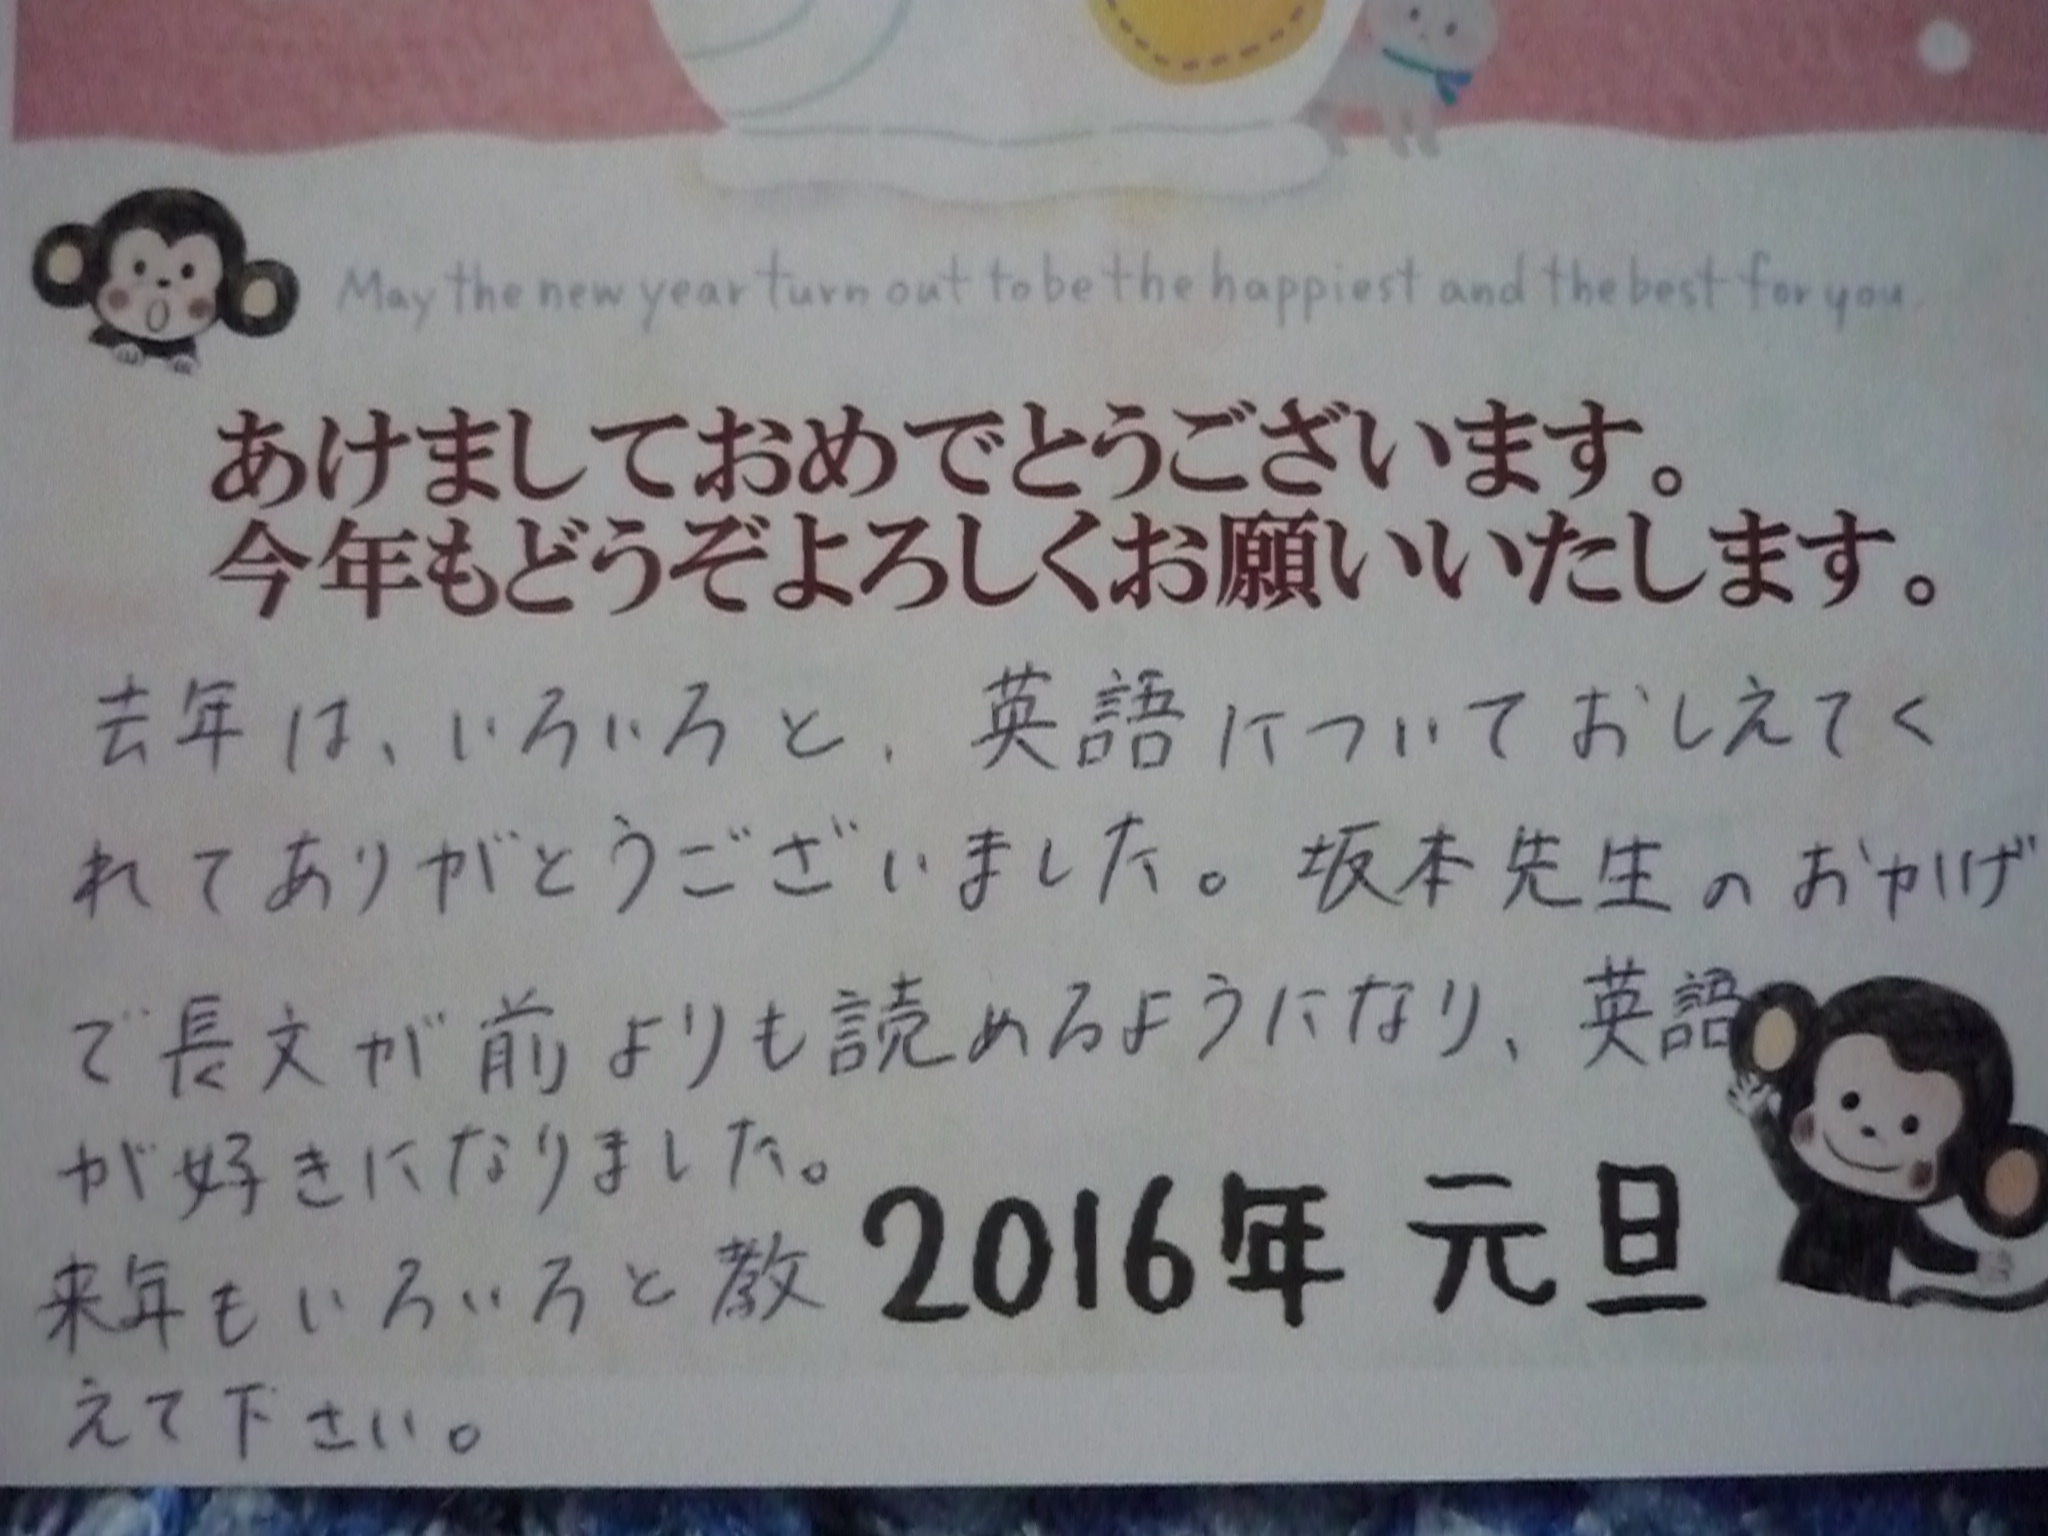 May the new year turn out to be the happiest and the best for you.
あけましておめでとうございます。
今年もどうぞよろしくお願いいたします。
去年は、いろいろと、英語についておしえてく
れてありがとうございました。坂本先生のおかげ
で長文が前よりも読めるようになり、英語
が好きになりました。
来年もいろいろと教
えて下さい。
2016年 元旦